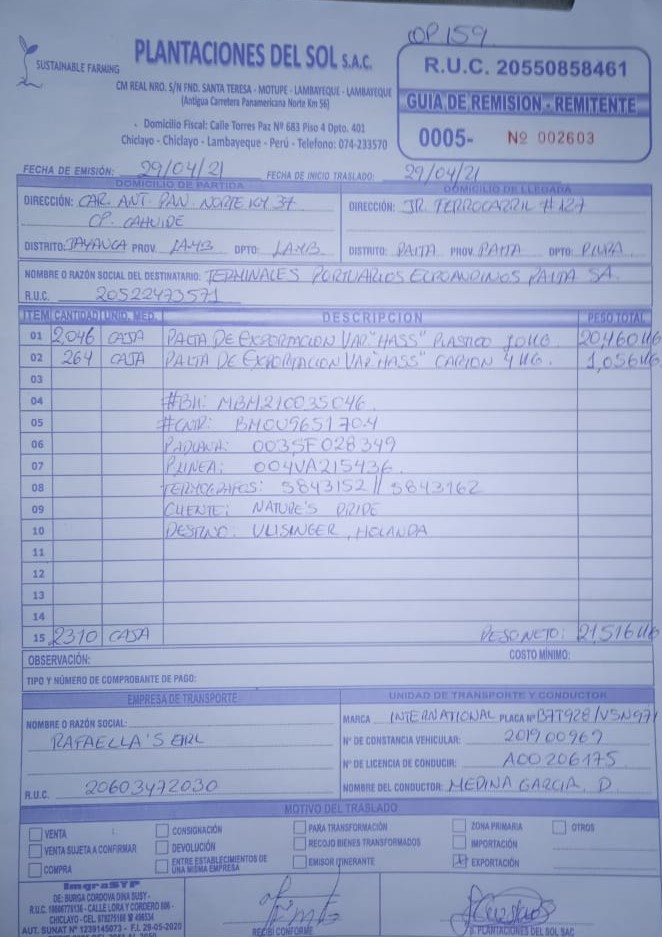 OP 159
SUSTAINABLE FARMING
PLANTACIONES DEL SOL S.A.C.
CM REAL NRO. S/N FND. SANTA TERESA - MOTUPE - LAMBAYEQUE - LAMBAYEQUE
(Antigua Carretera Panamericana Norte Km 56)
Domicilio Fiscal: Calle Torres Paz Nº 683 Piso 4 Dpto. 401
Chiclayo - Chiclayo - Lambayeque - Perú - Telefono: 074-233570
R.U.C. 20550858461
GUIA DE REMISION - REMITENTE
0005- Nº 002603
FECHA DE EMISIÓN: 29/04/21 FECHA DE INICIO TRASLADO: 29/04/21
DOMICILIO DE PARTIDA
DIRECCIÓN: CAR. ANT. PAN. NORTE KM 37
CP. CAHUIDE
DISTRITO: JAYANCA PROV. LAMB DPTO: LAMB
DOMICILIO DE LLEGADA
DIRECCIÓN: JR. FERROCARRIL # 127
DISTRITO: PAITA PROV. PAITA DPTO: PIURA
NOMBRE O RAZÓN SOCIAL DEL DESTINATARIO: TERMINALES PORTUARIOS EUROANDINOS PAITA SA
R.U.C. 20522473571
ITEM CANTIDAD UNID. MED. DESCRIPCION PESO TOTAL
01 2,046 CAJA PALTA DE EXPORTACION VAR. "HASS" PLASTICO 10 KG. 20,460 KG
02 264 CAJA PALTA DE EXPORTACION VAR. "HASS" CARTON 4 KG. 1,056 KG
03
04 #BK: MBM210035046
05 #CNTR: BMOU965170-4
06 P.ADUANA: 0035F028349
07 P.LINEA: 004VA215436
08 TERMOGRAFOS: 5843152 // 5843162
09 CLIENTE: NATURE'S PRIDE
10 DESTINO: VLISINGER, HOLANDA
11
12
13
14
15 2310 CAJA PESO NETO: 21,516 KG
OBSERVACIÓN: COSTO MÍNIMO:
TIPO Y NÚMERO DE COMPROBANTE DE PAGO:
EMPRESA DE TRANSPORTE
NOMBRE O RAZÓN SOCIAL:
RAFAELLA'S EIRL
R.U.C. 20603472030
UNIDAD DE TRANSPORTE Y CONDUCTOR
MARCA INTERNATIONAL PLACA Nº B7T928/VSN971
Nº DE CONSTANCIA VEHICULAR: 201900969
Nº DE LICENCIA DE CONDUCIR: A00206175
NOMBRE DEL CONDUCTOR: MEDINA GARCIA, D
MOTIVO DEL TRASLADO
VENTA
VENTA SUJETA A CONFIRMAR
COMPRA
CONSIGNACIÓN
DEVOLUCIÓN
ENTRE ESTABLECIMIENTOS DE
UNA MISMA EMPRESA
PARA TRANSFORMACIÓN
RECOJO BIENES TRANSFORMADOS
EMISOR ITINERANTE
ZONA PRIMARIA
IMPORTACIÓN
EXPORTACIÓN
OTROS
ImgraSYP
DE: BURGA CORDOVA DINA SUSY -
R.U.C. 16666776136 - CALLE LORA Y CORDERO 806 -
CHICLAYO - CEL. 979275188 # 496534
AUT. SUNAT Nº 1239145073 - F.I. 29-05-2020
RECIBÍ CONFORME
P. PLANTACIONES DEL SOL SAC